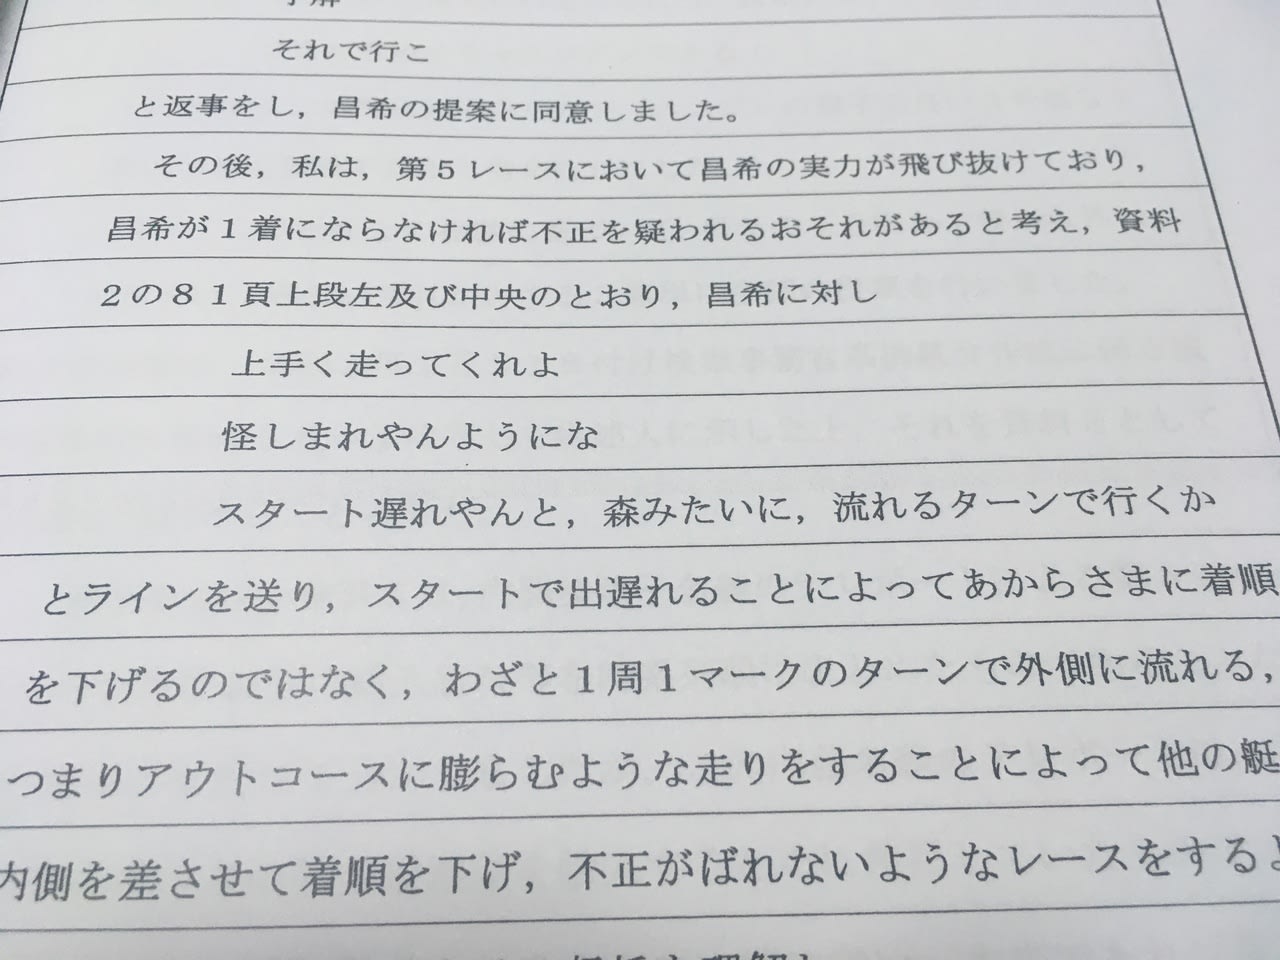 了解
それで行こ
と返事をし，昌希の提案に同意しました。
その後，私は，第５レースにおいて昌希の実力が飛び抜けており，
昌希が１着にならなければ不正を疑われるおそれがあると考え，資料
２の８１頁上段左及び中央のとおり，昌希に対し
上手く走ってくれよ
怪しまれやんようにな
スタート遅れやんと，森みたいに，流れるターンで行くか
とラインを送り，スタートで出遅れることによってあからさまに着順
を下げるのではなく，わざと１周１マークのターンで外側に流れる，
つまりアウトコースに膨らむような走りをすることによって他の艇
内側を差させて着順を下げ，不正がばれないようなレースをするよ